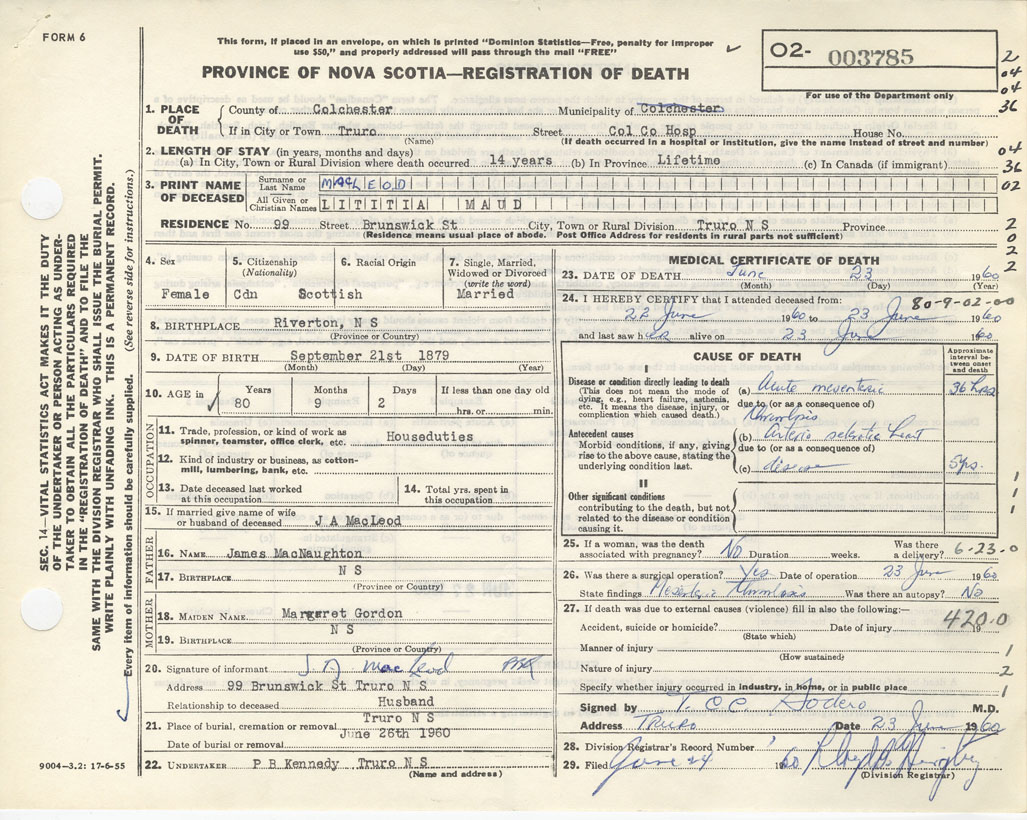 FORM 6
This form, if placed in an envelope, on which is printed "Dominion Statistics—Free, penalty for improper
use $50," and properly addressed will pass through the mail "FREE"
PROVINCE OF NOVA SCOTIA—REGISTRATION OF DEATH
O2- 003785
For use of the Department only
2
04
04
36
04
36
02
2
0
2
2
SEC. 14—VITAL STATISTICS ACT MAKES IT THE DUTY
OF THE UNDERTAKER OR PERSON ACTING AS UNDER-
TAKER TO OBTAIN ALL THE PARTICULARS REQUIRED
IN THE "REGISTRATION OF DEATH" AND TO FILE THE
SAME WITH THE DIVISION REGISTRAR WHO SHALL ISSUE THE BURIAL PERMIT.
WRITE PLAINLY WITH UNFADING INK. THIS IS A PERMANENT RECORD.
Every item of information should be carefully supplied. (See reverse side for instructions.)
1. PLACE OF DEATH
County of Colchester Municipality of Colchester
If in City or Town Truro Street Col Co Hosp House No.
(Name) (If death occurred in a hospital or institution, give the name instead of street and number)
2. LENGTH OF STAY (in years, months and days)
(a) In City, Town or Rural Division where death occurred 14 years (b) In Province Lifetime (c) In Canada (if immigrant)
3. PRINT NAME OF DECEASED
Surname or Last Name MACLEOD
All Given or Christian Names LITITIA MAUD
RESIDENCE No. 99 Street Brunswick St City, Town or Rural Division Truro N S Province
(Residence means usual place of abode. Post Office Address for residents in rural parts not sufficient)
4. Sex
Female
5. Citizenship (Nationality)
Cdn
6. Racial Origin
Scottish
7. Single, Married, Widowed or Divorced (write the word)
Married
8. BIRTHPLACE Riverton, N S
(Province or Country)
9. DATE OF BIRTH September 21st 1879
(Month) (Day) (Year)
10. AGE in
Years 80
Months 9
Days 2
If less than one day old
hrs. or min.
OCCUPATION
11. Trade, profession, or kind of work as spinner, teamster, office clerk, etc. Houseduties
12. Kind of industry or business, as cotton-mill, lumbering, bank, etc.
13. Date deceased last worked at this occupation
14. Total yrs. spent in this occupation
15. If married give name of wife or husband of deceased J A MacLeod
FATHER
16. NAME James MacNaughton
17. BIRTHPLACE N S
(Province or Country)
MOTHER
18. MAIDEN NAME Margaret Gordon
19. BIRTHPLACE N S
(Province or Country)
20. Signature of informant J. A. MacLeod
Address 99 Brunswick St Truro N S
Relationship to deceased Husband
21. Place of burial, cremation or removal Truro N S
Date of burial or removal June 26th 1960
22. UNDERTAKER P B Kennedy Truro N S
(Name and address)
9004—3.2: 17-6-55
MEDICAL CERTIFICATE OF DEATH
23. DATE OF DEATH June 23 1960
(Month) (Day) (Year)
24. I HEREBY CERTIFY that I attended deceased from: 80-9-02-00
22 June 1960 to 23 June 1960
and last saw her alive on 23 June 1960
CAUSE OF DEATH
Approximate interval between onset and death
I
Disease or condition directly leading to death
(This does not mean the mode of dying, e.g., heart failure, asthenia, etc. It means the disease, injury, or complication which caused death.)
(a) Acute mesenteric 36 hrs
due to (or as a consequence of)
thrombosis
Antecedent causes
Morbid conditions, if any, giving rise to the above cause, stating the underlying condition last.
(b) Arterio sclerotic heart
due to (or as a consequence of)
(c) disease 5 yrs.
II
Other significant conditions contributing to the death, but not related to the disease or condition causing it.
1
1
1
25. If a woman, was the death associated with pregnancy? No Duration weeks. Was there a delivery? 6-23-0
26. Was there a surgical operation? Yes Date of operation 23 June 1960
State findings Mesenteric thrombosis Was there an autopsy? No
27. If death was due to external causes (violence) fill in also the following:—
420.0
Accident, suicide or homicide? Date of injury 19
(State which)
Manner of injury 1
(How sustained)
Nature of injury 2
Specify whether injury occurred in industry, in home, or in public place 1
Signed by T. C. C. Sodero M.D.
Address Truro Date 23 June 1960
28. Division Registrar's Record Number
29. Filed June 24 1960
(Division Registrar)